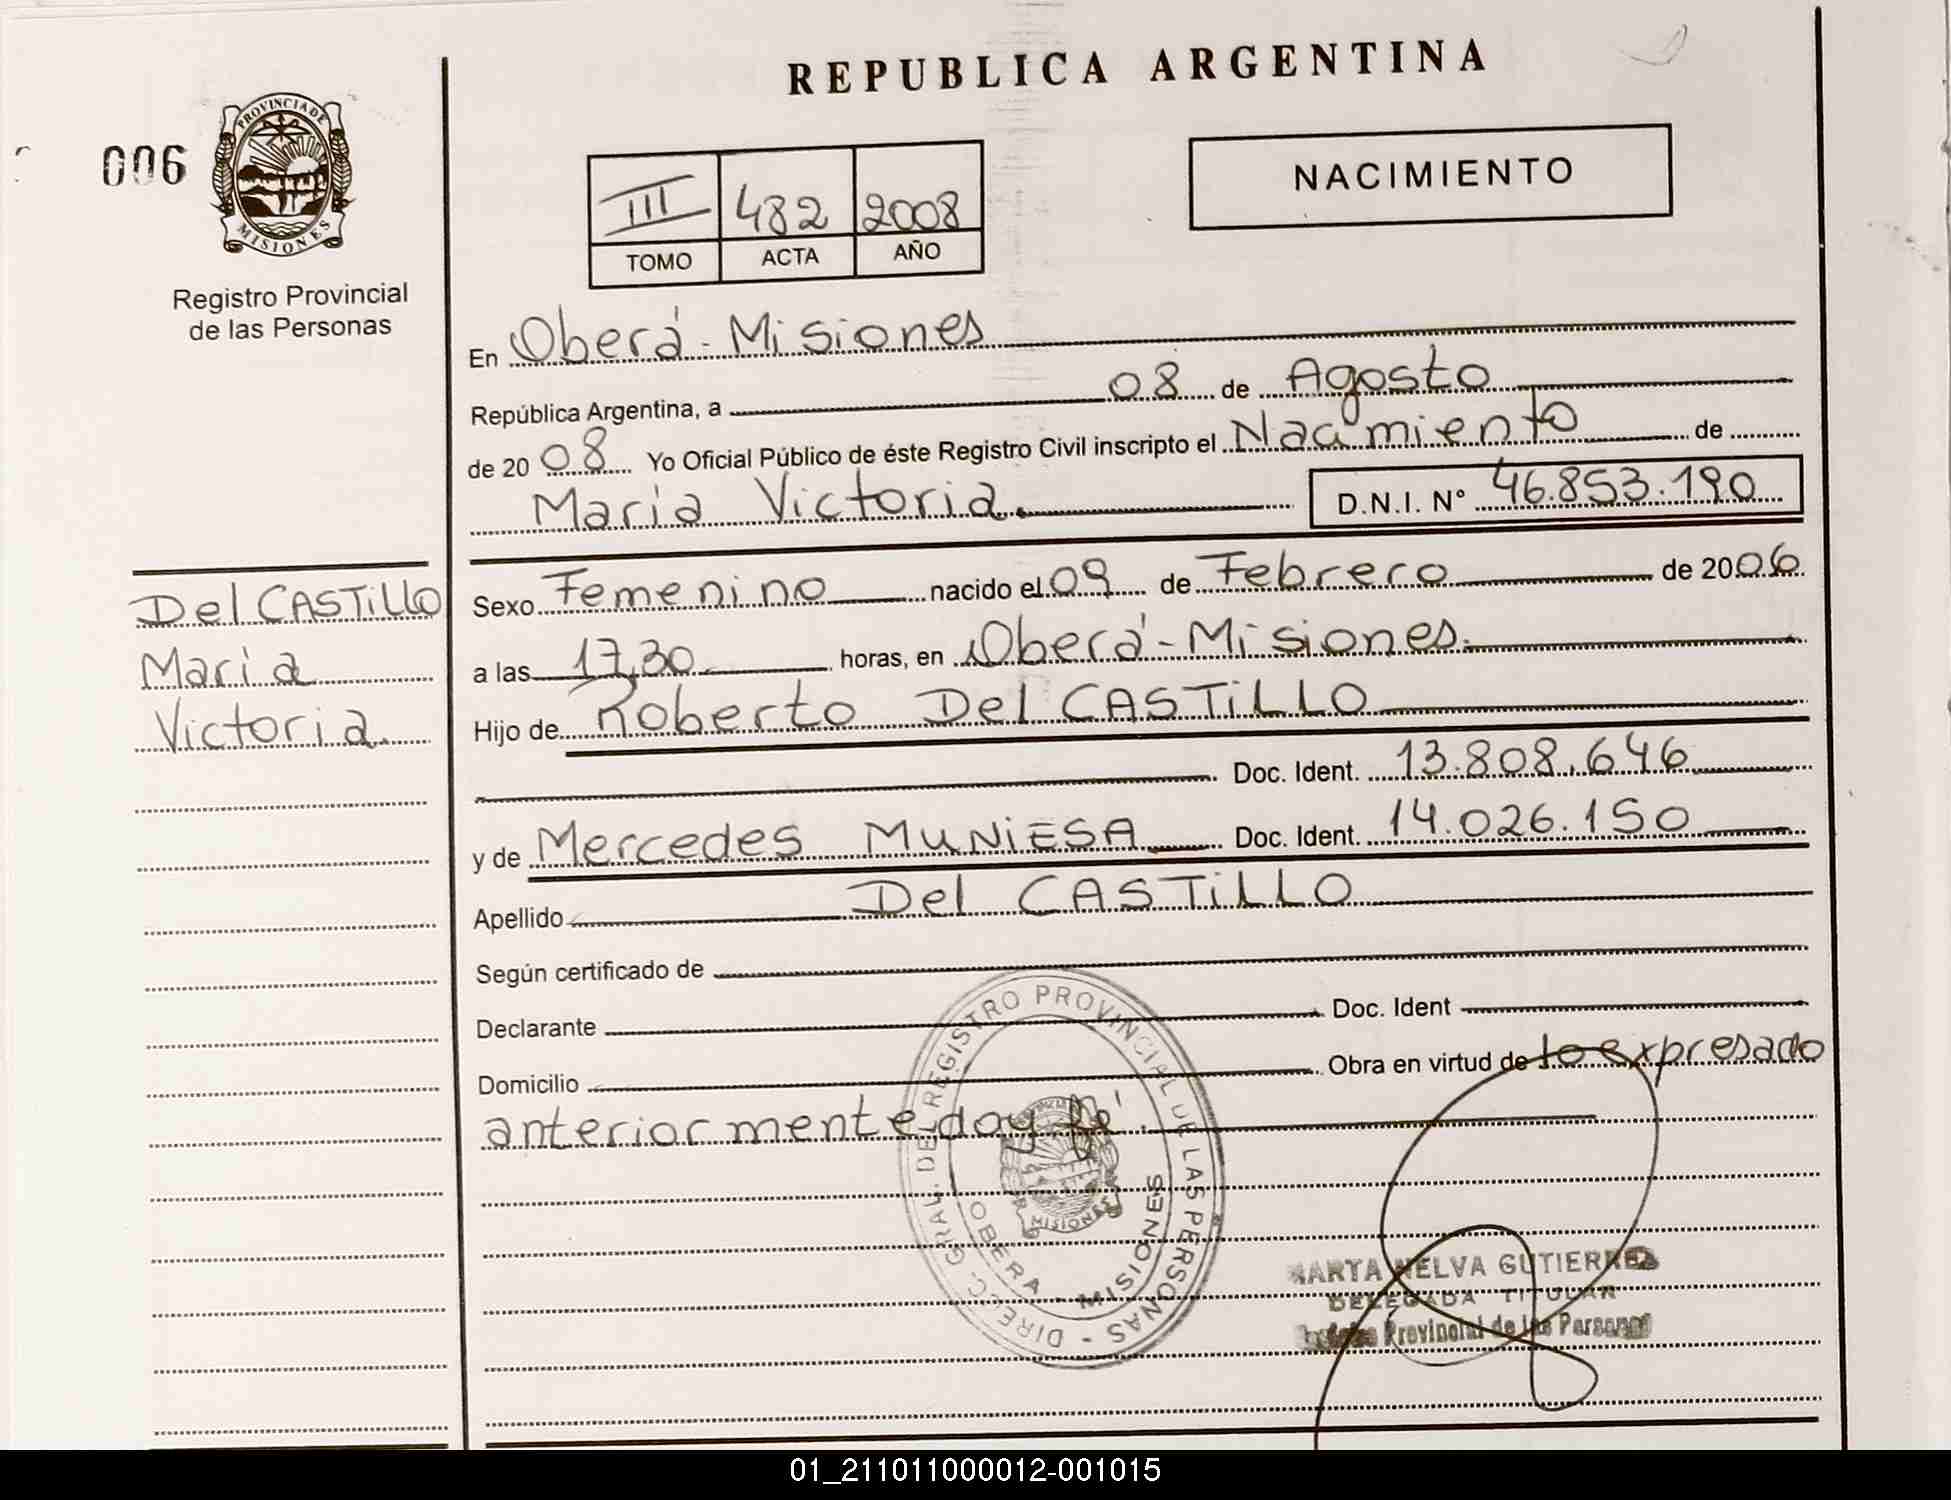 REPUBLICA ARGENTINA
006
PROVINCIA DE
MISIONES
Registro Provincial
de las Personas
III 482 2008
TOMO ACTA AÑO
NACIMIENTO
En Oberá - Misiones
República Argentina, a 08 de Agosto
de 20 08 Yo Oficial Público de éste Registro Civil inscripto el Nacimiento de
Maria Victoria. D.N.I. N° 46.853.190
Del CASTILLO
Maria
Victoria.
Sexo Femenino nacido el 09 de Febrero de 2006
a las 17,30 horas, en Oberá - Misiones.
Hijo de Roberto Del CASTILLO
Doc. Ident. 13.808.646
y de Mercedes MUNIESA Doc. Ident. 14.026.150
Apellido Del CASTILLO
Según certificado de
Declarante Doc. Ident
Domicilio Obra en virtud de lo expresado
anteriormente, doy fé.
DIREC. GRAL. DEL REGISTRO PROVINCIAL DE LAS PERSONAS -
OBERA - MISIONES
MISIONES
MARTA NELVA GUTIERREZ
DELEGADA TITULAR
Provincial de las Personas
01_211011000012-001015